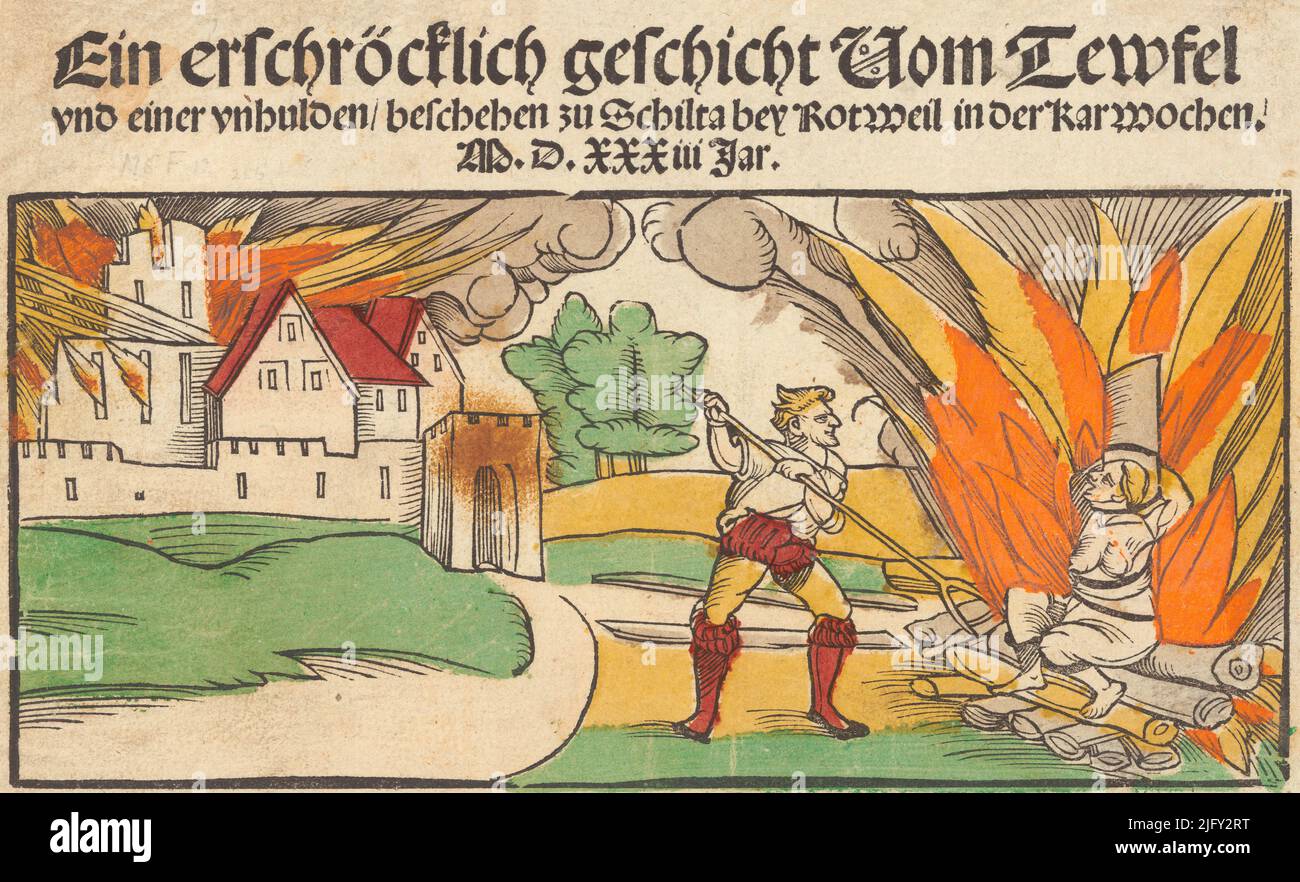 Ein erſchröcklich geſchicht Vom Tewfel
vnd einer vnhulden/ beſchehen zu Schilta bey Rotweil in der Karwochen.
M. D. XXXiii Jar.
a
alamy
Image ID: 2JFY2RT
www.alamy.com